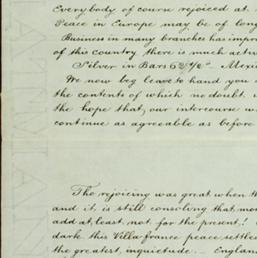 Everybody of course rejoiced at
Peace in Europe may be of long
Business in many branches has impro
of this country there is much activ
Silver in Bars 62 Mexi
We now beg leave to hand you
the contents of which no doubt
the hope that our intercourse w
continue as agreeable as before
The rejoicing was great when th
and it is still consoling that mor
add at least not for the present!
dark this Villafranca peace settle
the greatest inquietude... England